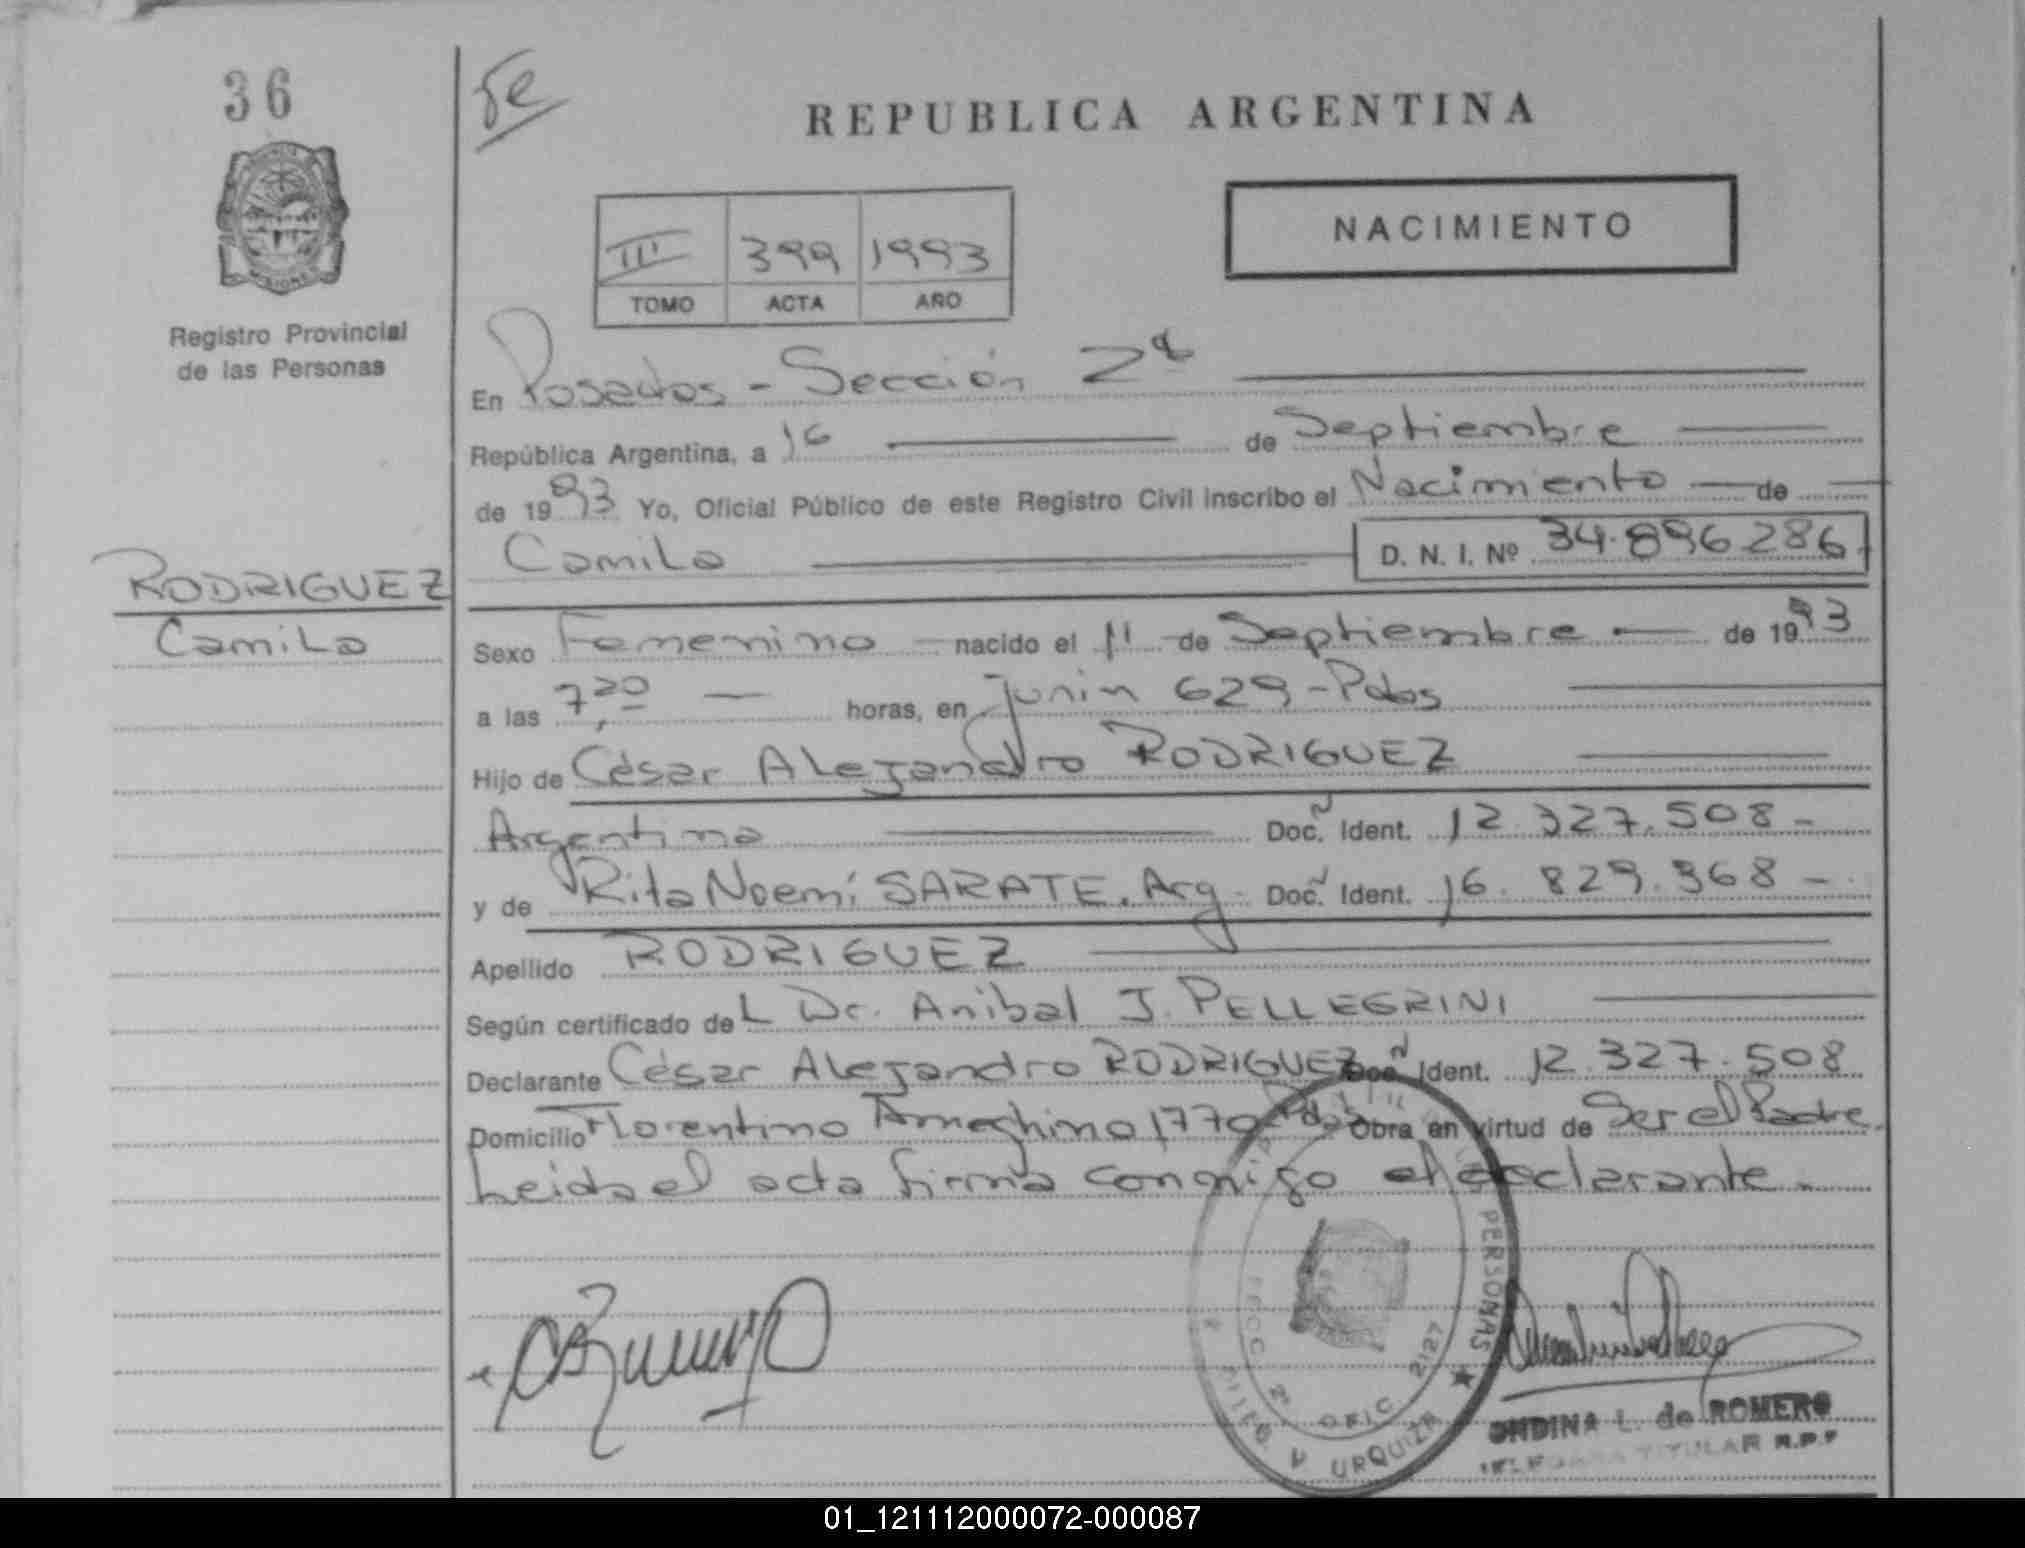 36
REPUBLICA ARGENTINA
NACIMIENTO
III 399 1993
TOMO ACTA AÑO
Registro Provincial
de las Personas
En Posadas - Sección 2ª
República Argentina, a 16 de Septiembre
de 1993 Yo, Oficial Público de este Registro Civil inscribo el Nacimiento de
Camila D. N. I. Nº 34.896.286
RODRIGUEZ
Camila
Sexo Femenino nacido el 11 de Septiembre de 1993
a las 7,20 horas, en Junin 629 - Pdas
Hijo de César Alejandro RODRIGUEZ
Argentino Doc. Ident. 12.327.508 -
y de Rita Noemí SARATE. Arg. Doc. Ident. 16.829.368 -
Apellido RODRIGUEZ
Según certificado del Dr. Anibal J. PELLEGRINI
Declarante César Alejandro RODRIGUEZ Doc. Ident. 12.327.508
Domicilio Florentino Ameghino 1770 Pdas Obra en virtud de Ser el Padre.
Leida el acta firma conmigo el declarante.
PERSONAS
SECC 2ª OFIC 2127
URQUIZA
ONDINA L. de ROMERO
TITULAR R.P.P
01_121112000072-000087